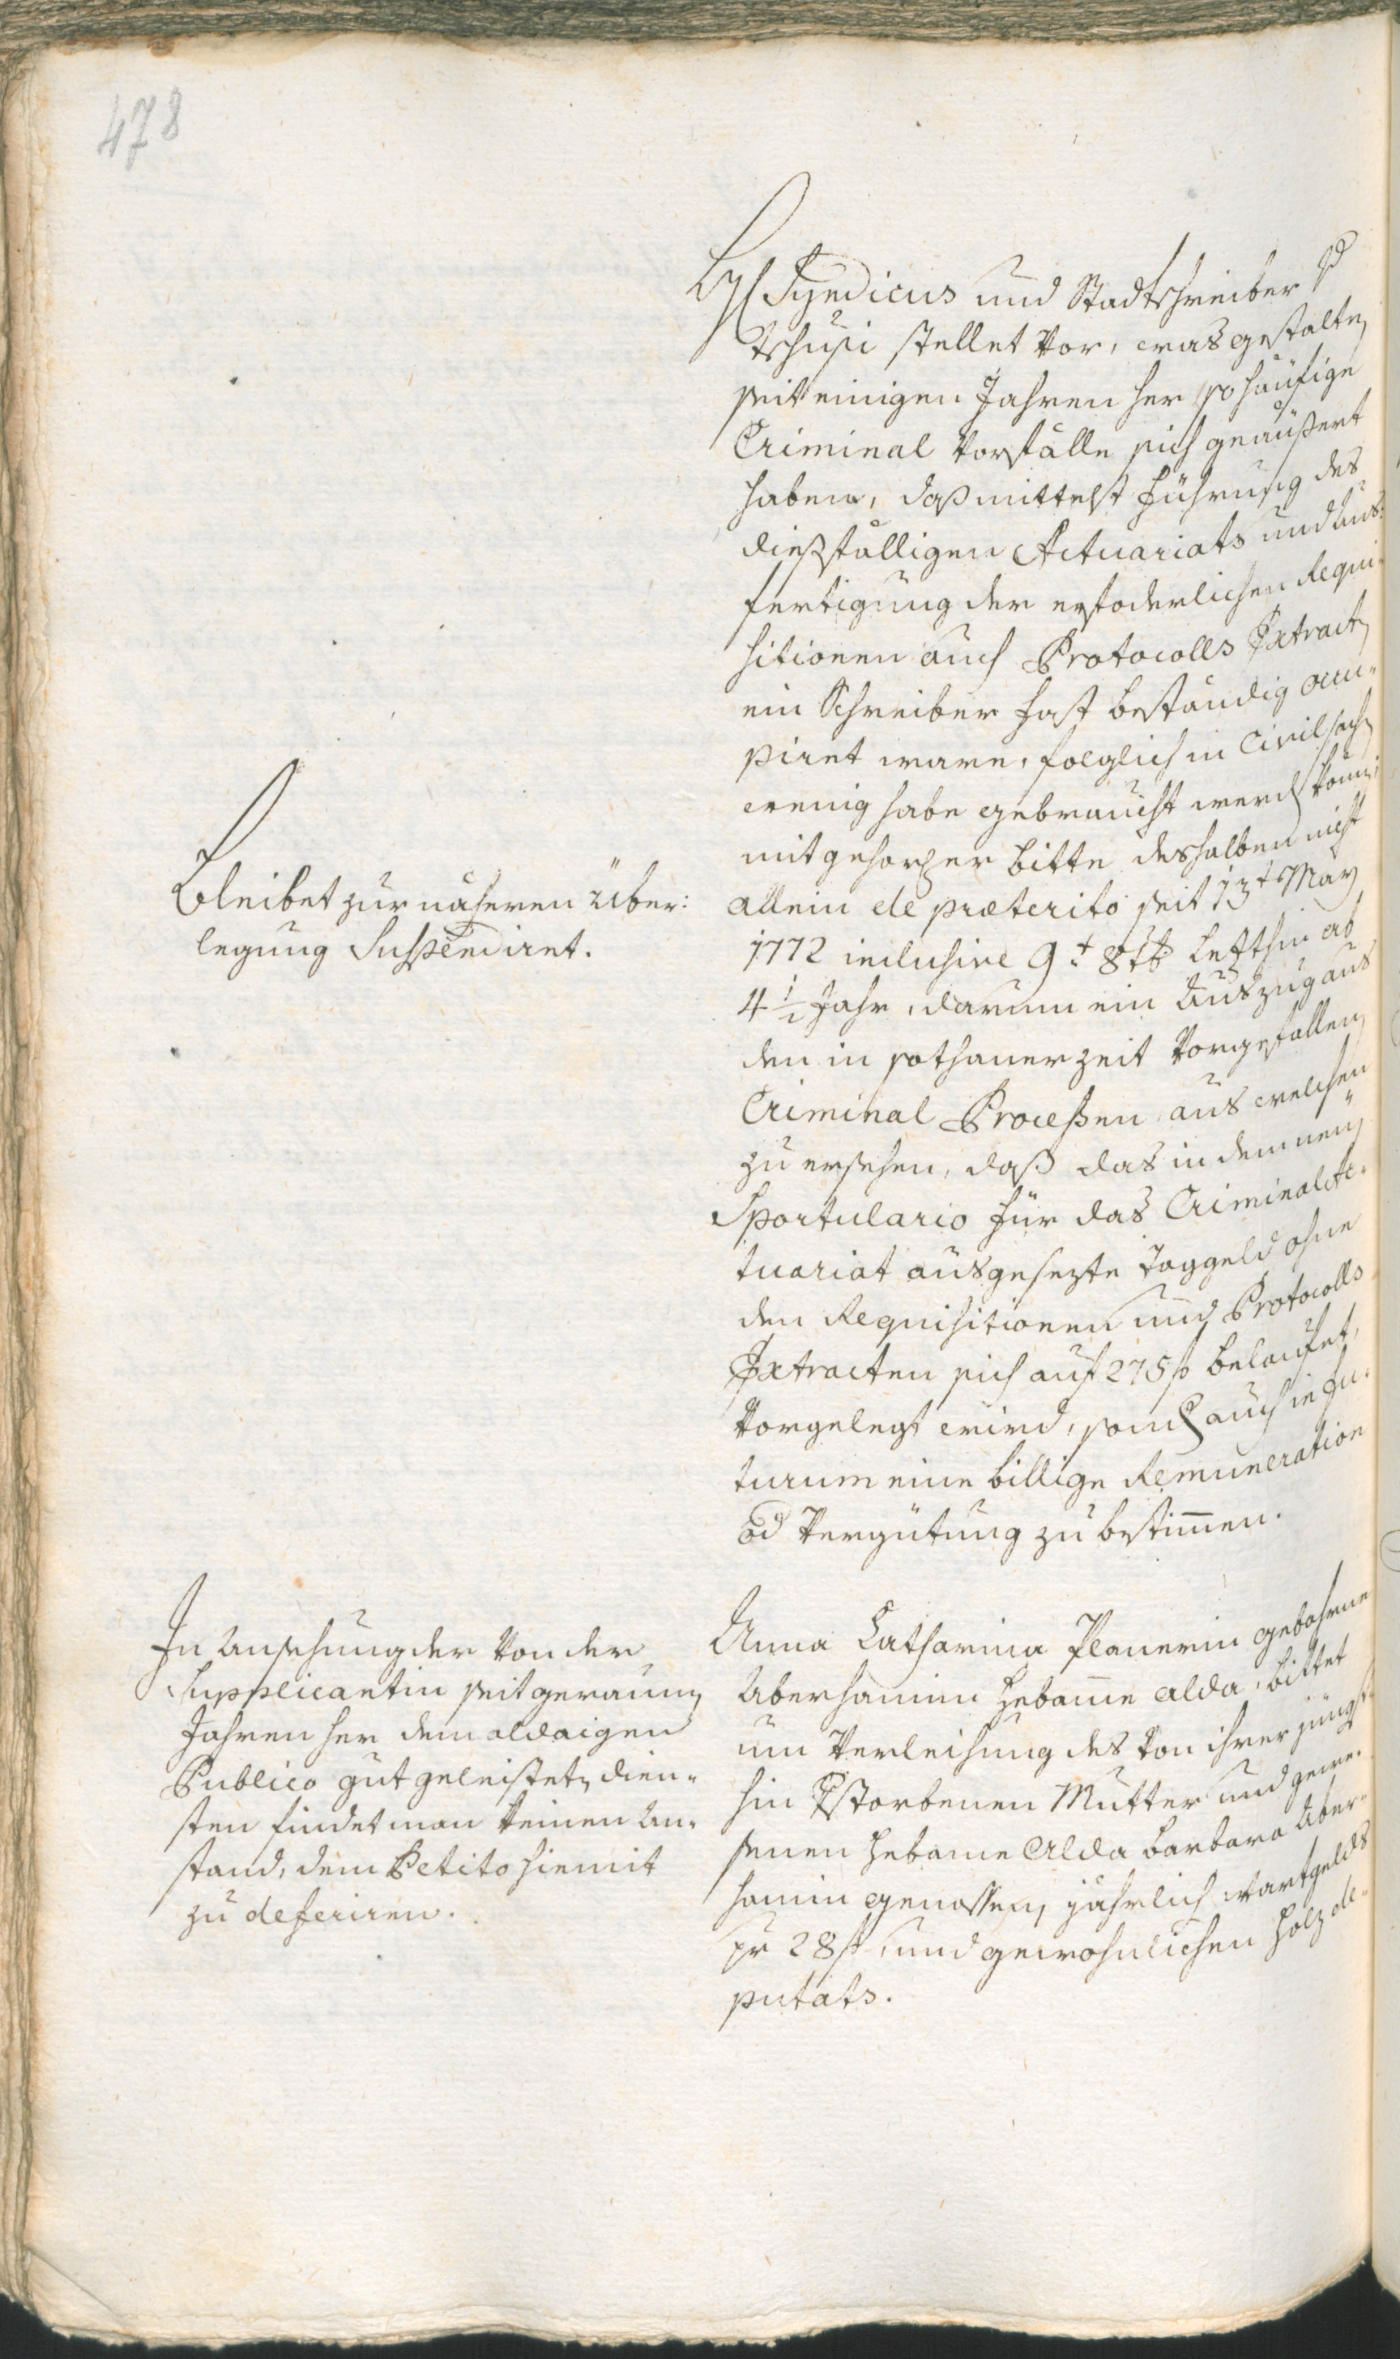 478
H Syndicus und Stadtschreiber v
Tschusi stellet vor, was gestalten
seit einigen Jahren her so häufige
Criminal Vorfälle sich geäußert
haben, daß mittelst Führung des
dießfälligen Actuariats und Aus:
fertigung der erfoderlichen Requi-
sitionen auch Protocolls Extracten
ein Schreiber fast beständig occu-
piret ware, folglich in Civil sachen
wenig habe gebraucht werden können
mit gehors: er Bitte deshalben nicht
allein de præterito seit 13t May
1772 inclusive 9t 8br letzthin ab
4 1/2 Jahr, darum ein Auszug aus
den in sothaner Zeit vorgefallenen
Criminal Processen aus welchen
zu ersehen, daß das in dem neuen
Sportulario für das Criminal Ac-
tuariat ausgesezte Taggeld ohne
den Requisitionen und Protocolls
Extracten sich auf 275 f belaufet,
vorgelegt wird, sondern auch in fu-
turum eine billige Remuneration
od Vergütung zu bestimmen.
Bleibet zur näheren Über:
legung Suspendiret.
Anna Catharina Planerin gebohrne
Aberhamin Hebame alda, bittet
um Verleihung des von ihrer jüngst
hin verstorbenen Mutter und gewe-
senen Hebame alda Barbara Aber-
hamin genossenen jährlich Wartgelds
pr 28 f, und gewohnlichen Holz de-
putats.
In Ansehung der von der
Supplicantin seit geraumen
Jahren her dem aldaigen
Publico gut geleisteten Dien-
sten findet man keinen An-
stand, dem Petito hiemit
zu deferiren.